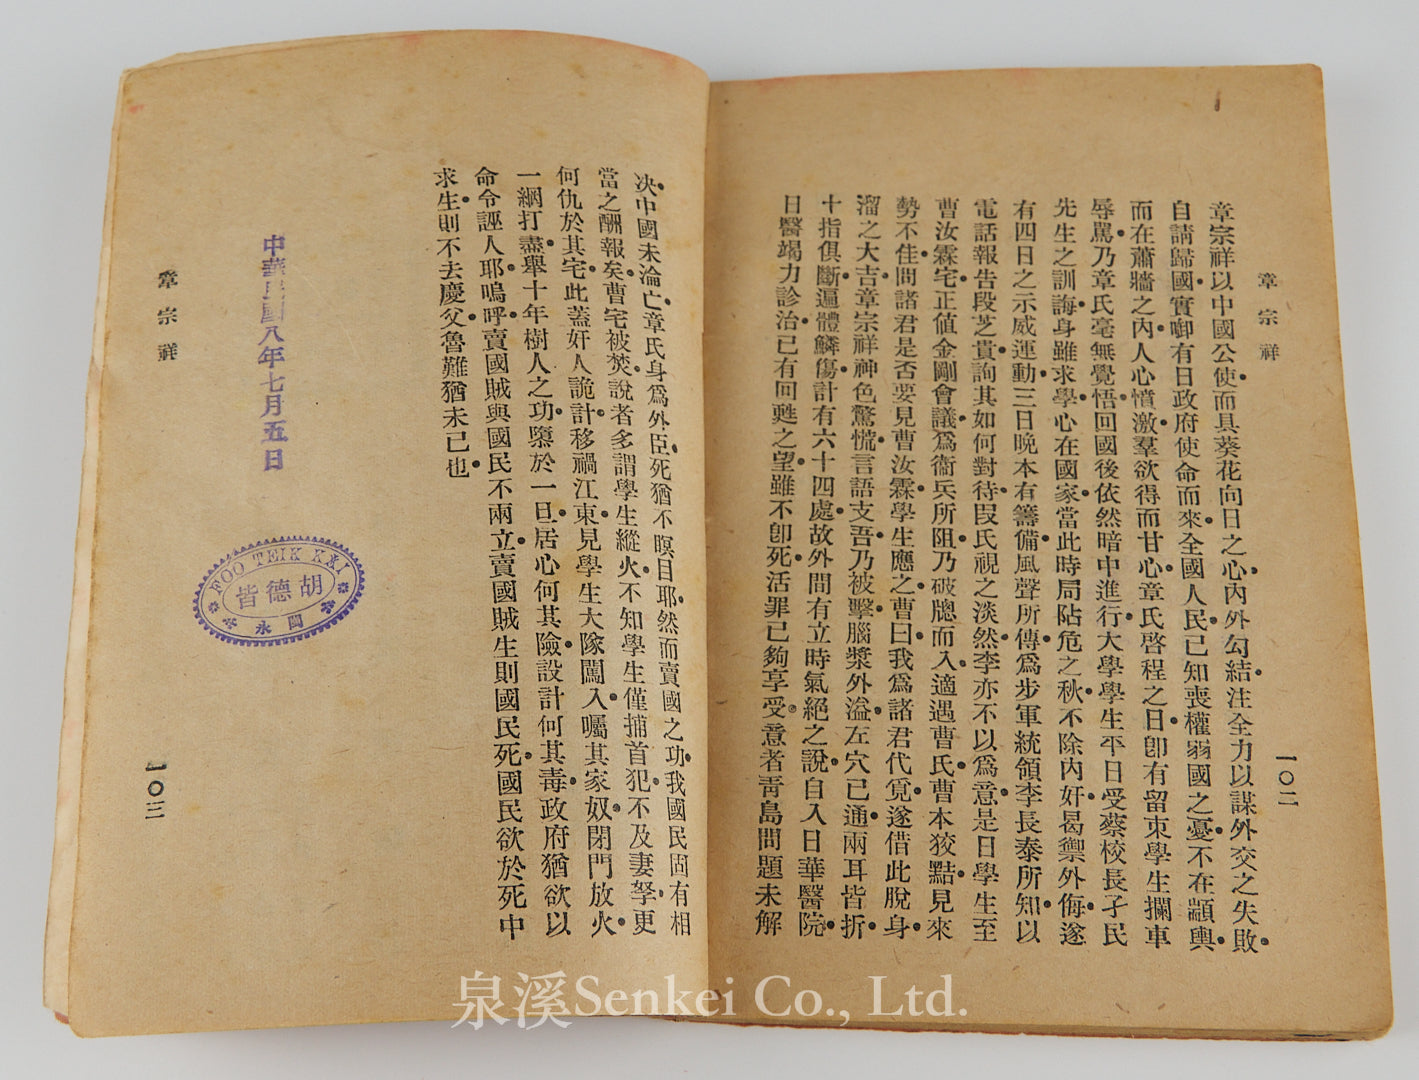 章宗祥
一〇二
章宗祥以中國公使•而具葵花向日之心•內外勾結•注全力以謀外交之失敗•
自請歸國•實啣有日政府使命而來•全國人民已知喪權弱國之憂•不在顓輿•
而在蕭牆之內•人心憤激•羣欲得而甘心•章氏啓程之日•卽有留東學生攔車
辱罵•乃章氏毫無覺悟•回國後依然暗中進行•大學學生平日受蔡校長孑民
先生之訓誨•身雖求學•心在國家•當此時局阽危之秋•不除內奸•曷禦外侮•遂
有四日之示威運動•三日晚本有籌備•風聲所傳•爲步軍統領李長泰所知•以
電話報告段芝貴•詢其如何對待•段氏視之淡然•李亦不以爲意•是日學生至
曹汝霖宅•正値金剛會議•爲衞兵所阻•乃破牕而入•適遇曹氏•曹本狡黠•見來
勢不佳•問諸君是否要見曹汝霖•學生應之•曹曰•我爲諸君代覓•遂借此脫身•
溜之大吉•章宗祥神色驚慌•言語支吾•乃被擊•腦漿外溢•左穴已通•兩耳皆折•
十指俱斷•遍體鱗傷•計有六十四處•故外間有立時氣絕之說•自入日華醫院•
日醫竭力診治•已有回甦之望•雖不卽死•活罪已夠享受•意者靑島問題未解
決•中國未淪亡•章氏身爲外臣•死猶不瞑目耶•然而賣國之功•我國民固有相
當之酬報矣•曹宅被焚•說者多謂學生縱火•不知學生僅捕首犯•不及妻孥•更
何仇於其宅•此蓋奸人詭計•移禍江東•見學生大隊闖入•囑其家奴•閉門放火•
一網打盡•舉十年樹人之功•隳於一旦•居心何其險•設計何其毒•政府猶欲以
命令誣人耶•嗚呼•賣國賊與國民不兩立•賣國賊生則國民死•國民欲於死中
求生•則不去慶父•魯難猶未已也•
中華民國八年七月五日
FOO TEIK KAI
胡德皆
章宗祥
一〇三
泉溪Senkei Co., Ltd.